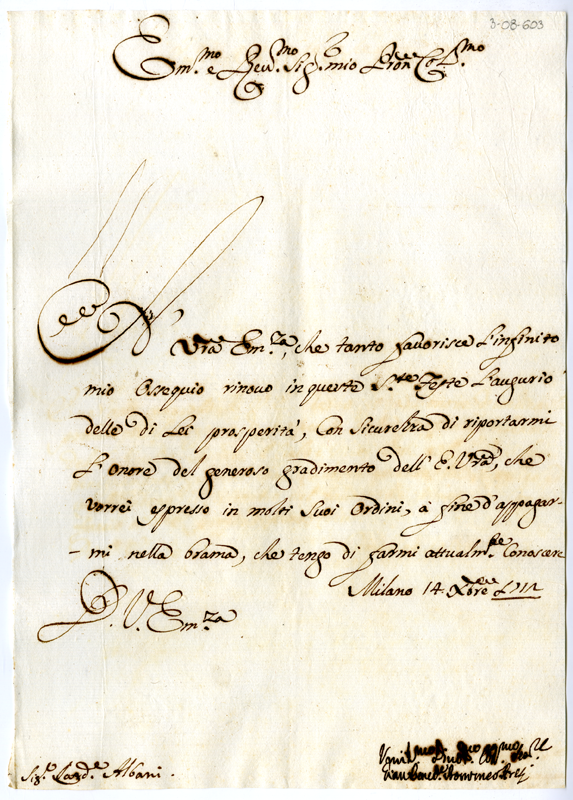 3-08-603
Em.mo e Rev.mo Sig.r mio P'ron Col.mo
A V'ra Em.za, che tanto favorisce l'infinito
mio Ossequio rinovo in queste S.te Feste l'augurio
delle di Lei prosperità, con Sicurezza di riportarmi
L'onore del generoso gradimento dell'E. V'ra, che
vorrei espresso in molti Suoi Ordini, à fine d'appagar-
-mi nella brama, che tengo di farmi attualm.te Conoscere
Milano 14. Xbre
D. V. Em.za
Sig.r Card.e Albani.